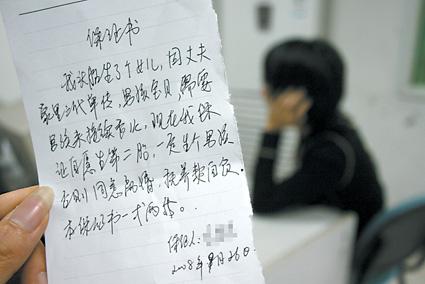 保证书
我头胎生了个女儿,因丈夫
家里三代单传,男孩,需要
男孩来接续香火,现在我保
证自愿生第二胎,一定生个男孩
否则同意离婚,抚养款自负.
本保证书一式两份。
保证人:
2008年月26日